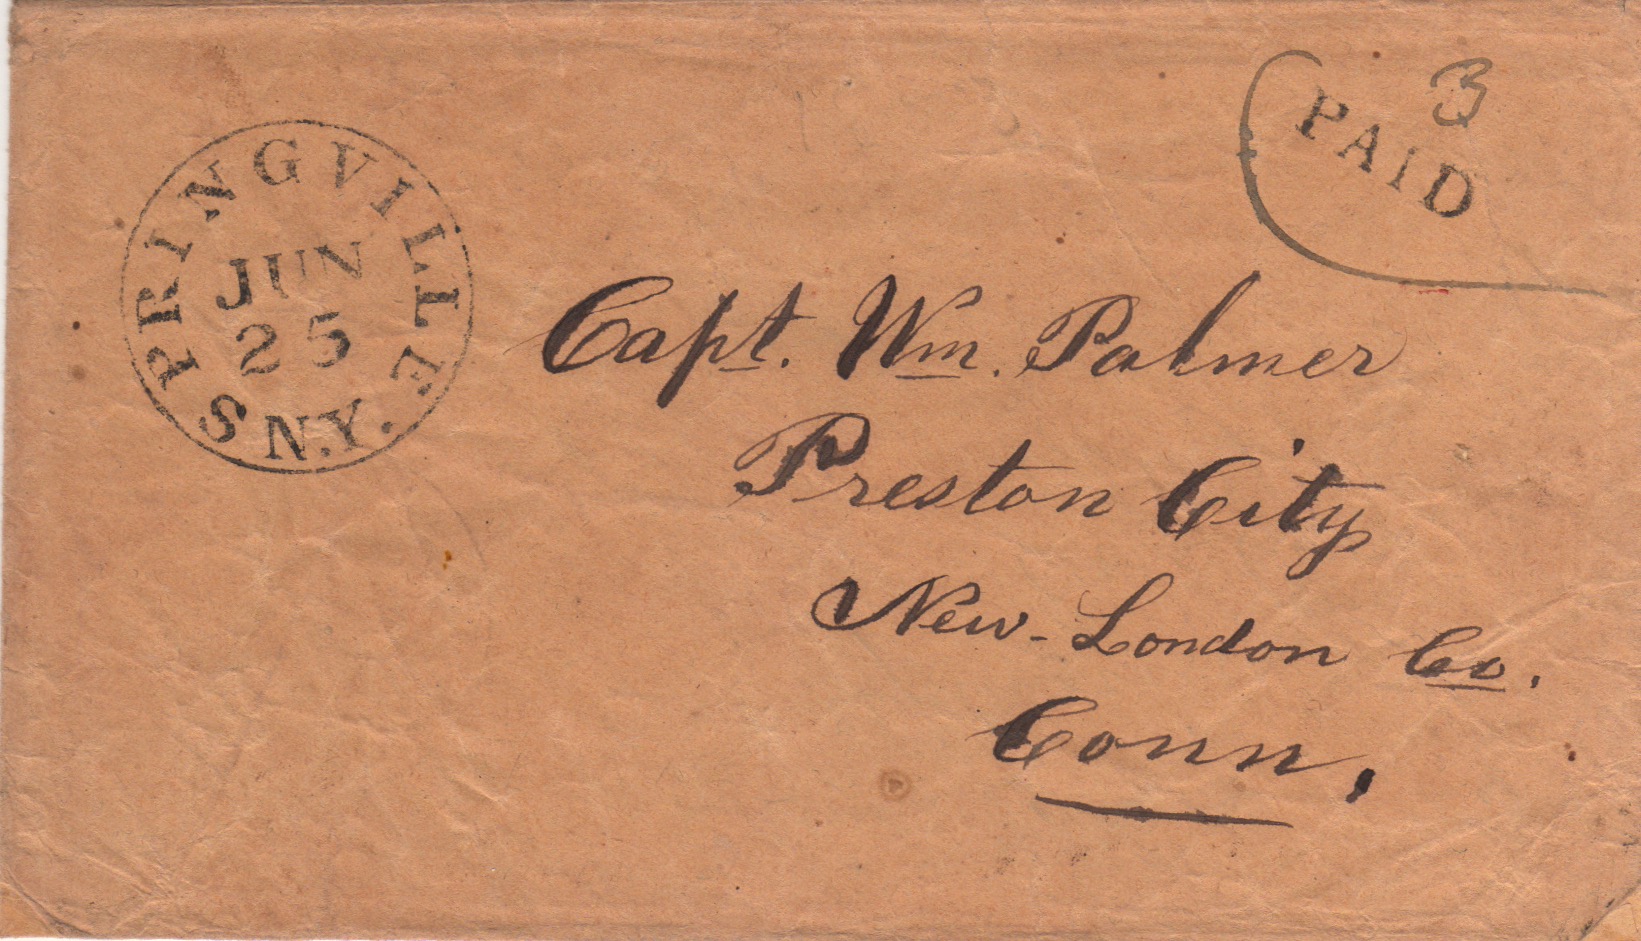 SPRINGVILLE
JUN
25
N.Y.
3
PAID
Capt. Wm. Palmer
Preston City
New-London Co.
Conn,